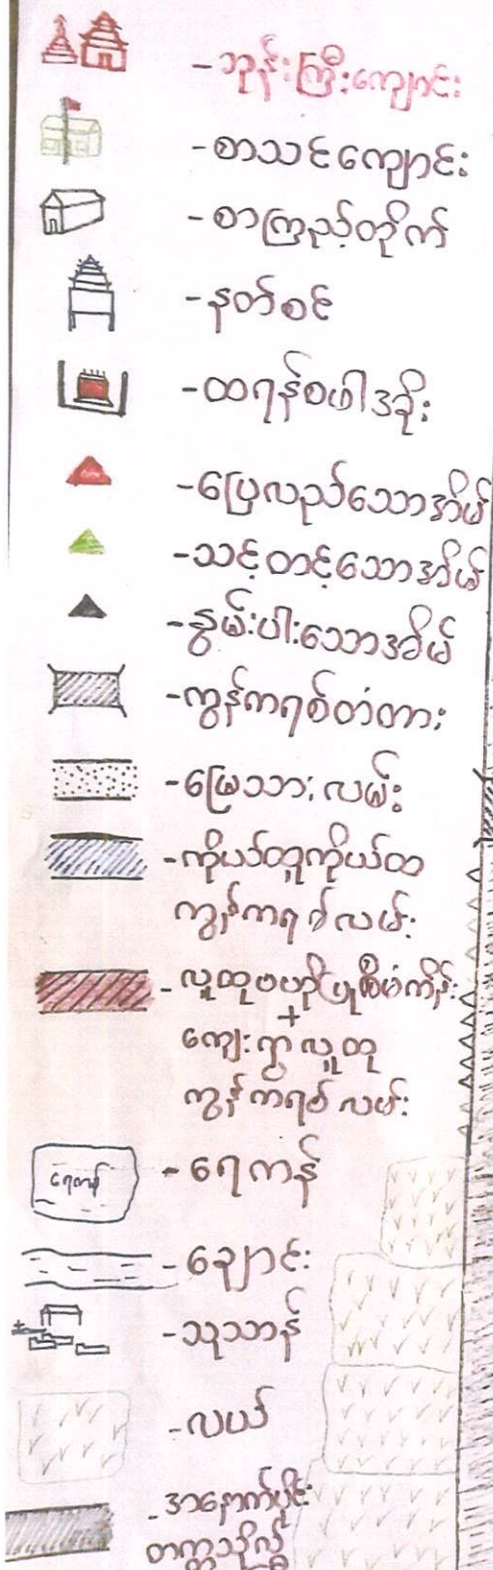 -ဘုန်းကြီးကျောင်း
-စာသင်ကျောင်း
-စာကြည့်တိုက်
-နတ်စင်
-ထရန်စဖါဒခိုး
-ပြေလည်သောအိမ်
-သင့်တင့်သောအိမ်
-နွမ်းပါးသောအိမ်
-ကွန်ကရစ်တံတား
-မြေသားလမ်း
-ကိုယ်ထူကိုယ်ထ
ကွန်ကရစ်လမ်း
-လူထုဗဟိုပြုစီမံကိန်း
+
ကျေးရွာလူထု
ကွန်ကရစ်လမ်း
ရေကန်
-ရေကန်
-ချောင်း
-သုသာန်
-လယ်
-အနောက်ပိုင်း
တက္ကသိုလ်